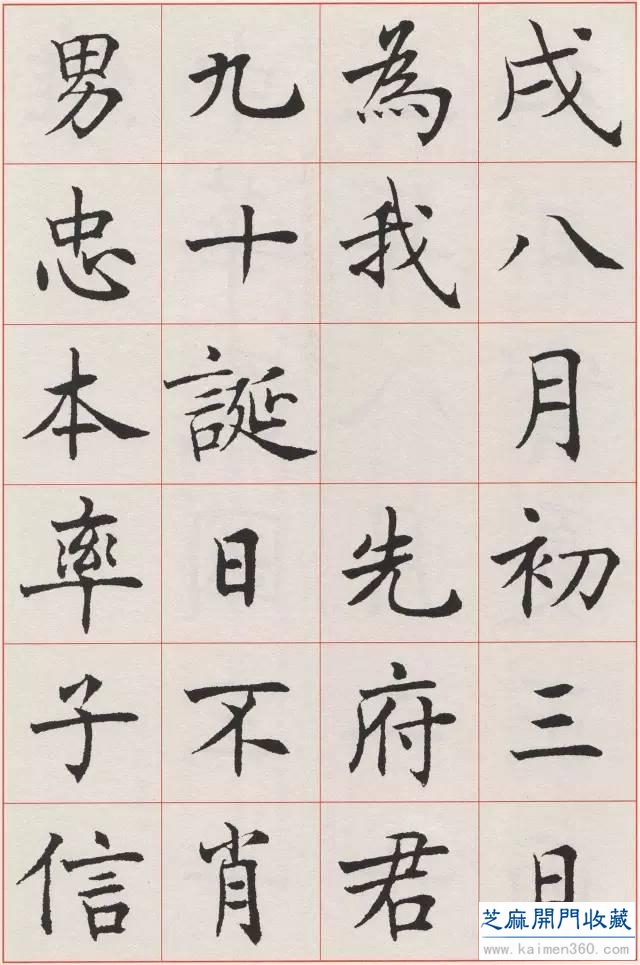 戌八月初三日
為我先府君
九十誕日不肖
男忠本率子信
芝麻開門收藏
www.kaimen360.com